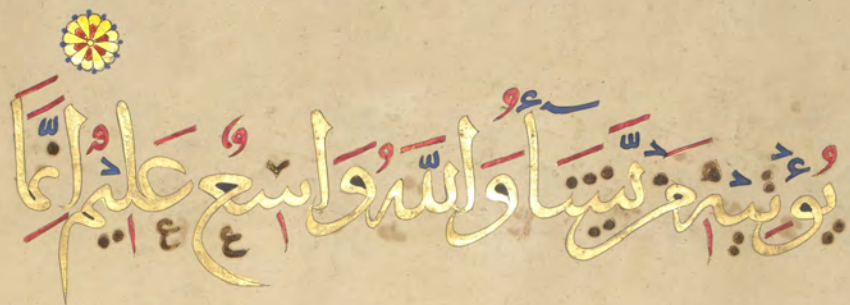 يُؤْتِيهِ مَنْ يَّشَآءُ وَاللَّهُ وَاسِعٌ عَلِيمٌ إِنَّمَا